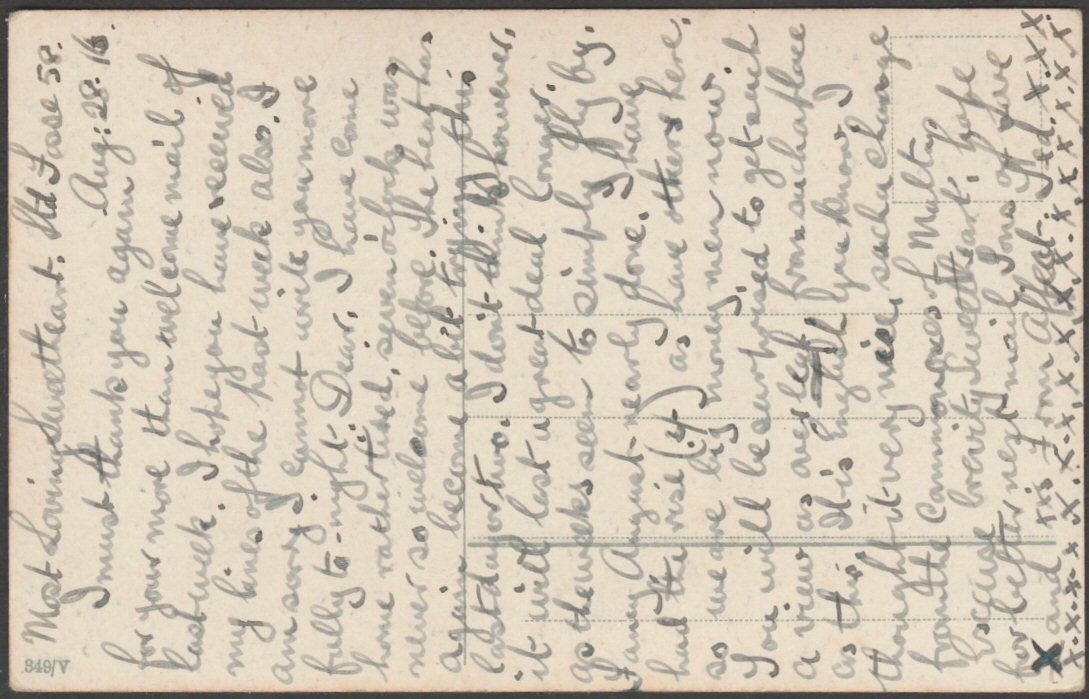 Most Loving Sweetheart. Std Fosse 58.
Aug: 28. 16.
I must thank you again
for your more than welcome mail of
last week. I hope you have received
my lines of the past week also. I
am sorry I cannot write you more
fully to-night. Dear. I have come
home rather tired, seven o'clock was
never so welcome before. The heat has
again become a bit toffing this
last day or two. I don't think, however,
it will last a great deal longer.
as the weeks seem to simply fly by.
Fancy August nearly done. I have
had the rise (£4) as have others here,
so we are big money men now.
You will be surprised to get such
a view as over leaf from such a place
as this. It is English you know. I
thought it very nice, such a change
from the Cannonages of Multy.
Excuse brevity Sweetheart, hope
for better next mail. Tons of love
and xxs From Affect. Ted. x.x.x
x.x.x.x.x.x.x.x.x.x.x.x.x.x.x.x.x.x.x.x
349/V